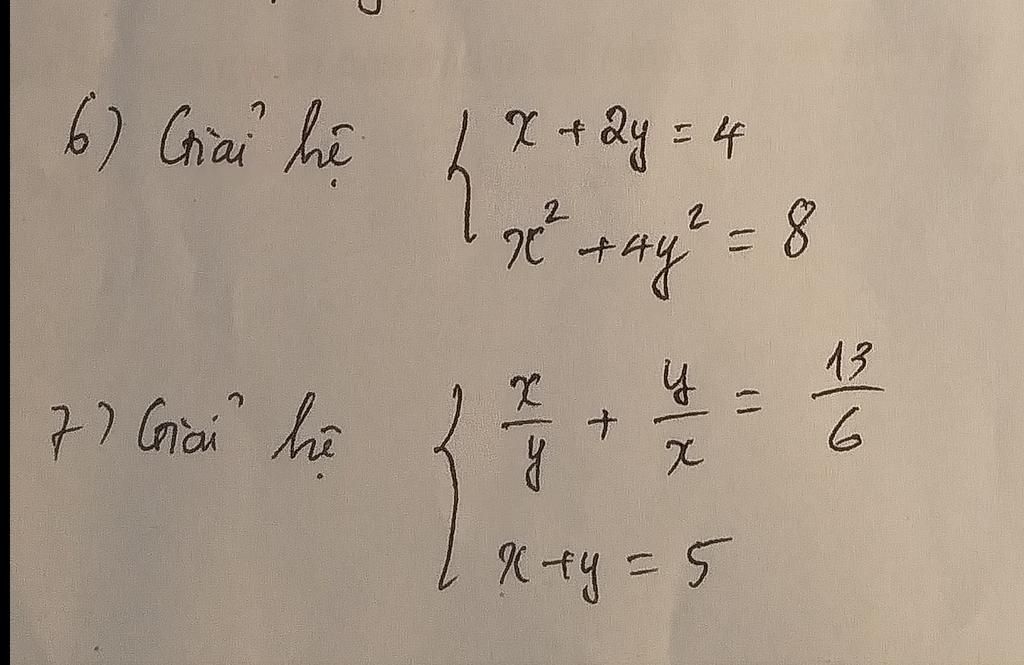 6) Giải hệ { x + 2y = 4
x² + 4y² = 8
7) Giải hệ { x/y + y/x = 13/6
x + y = 5